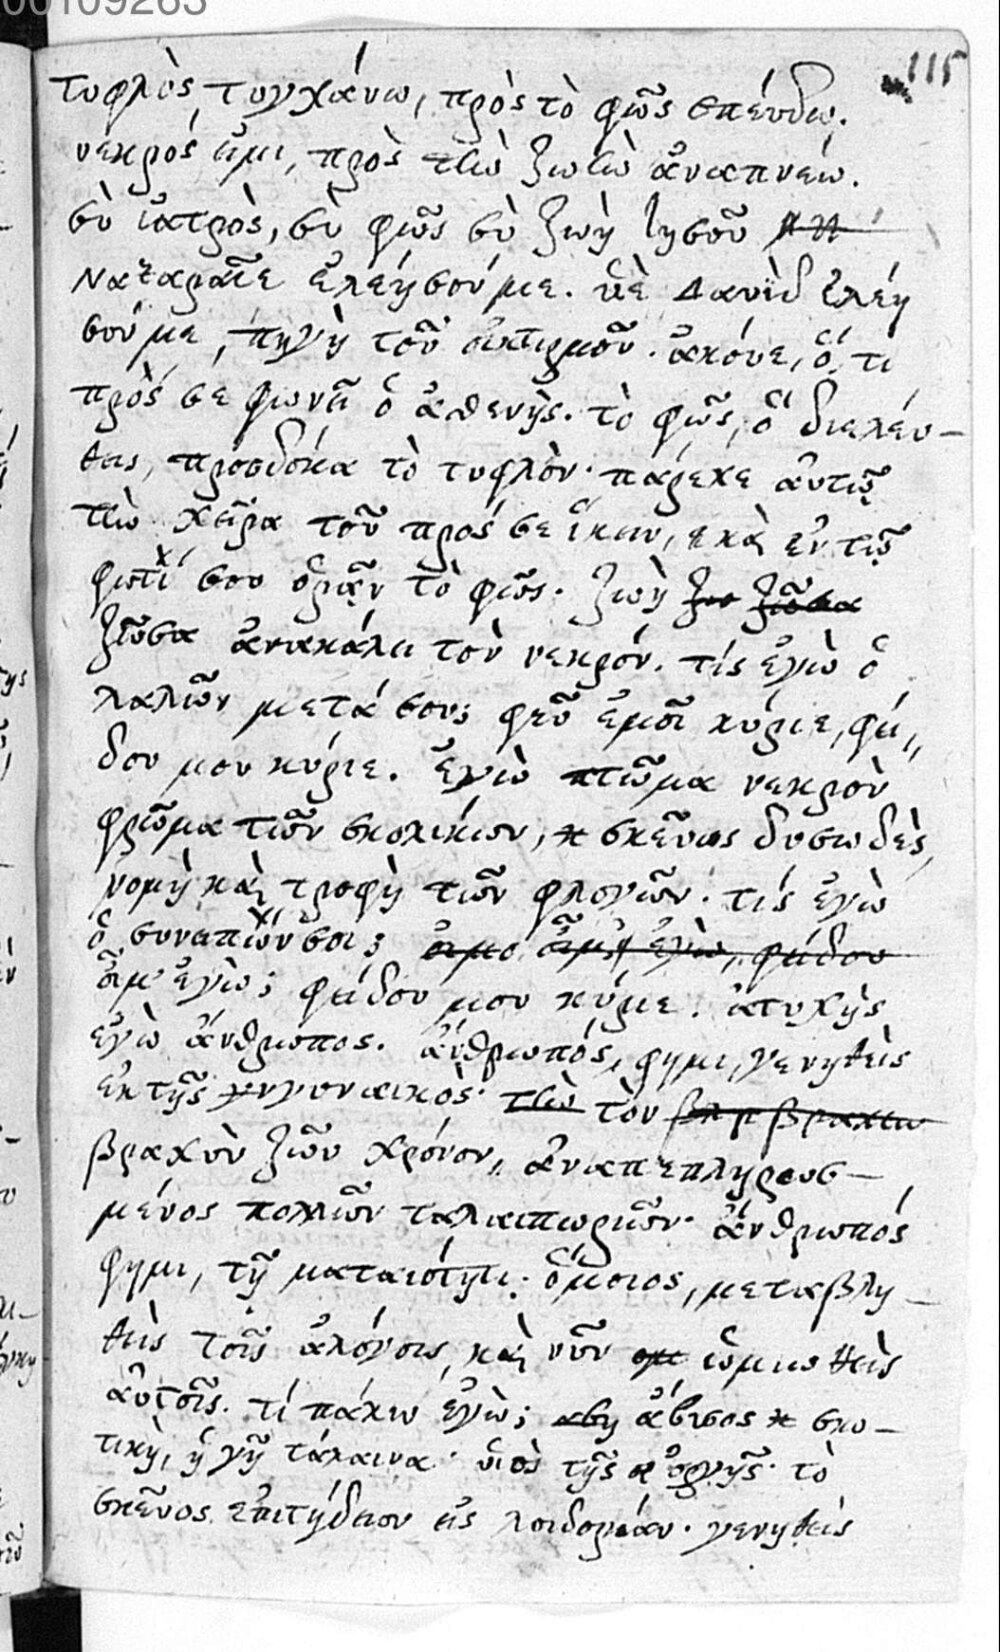 00109263
115
τυφλὸς τυγχάνω, πρὸς τὸ φῶς σπέυδω.
νεκρός εἰμι, πρὸς τὴν ζωὴν ἀναπνέω.
σὺ ἰατρὸς, σὺ φῶς σὺ ζωὴ Ἰησοῦ
Ναζαραῖε ἐλέησού με. ὑὲ Δαυὶδ ἐλέη
σού με, πηγὴ τοῦ οἰκτιρμοῦ. ἄκουε, ὅ, τι
πρὸς σὲ φωνεῖ ὁ ἀσθενὴς. τὸ φῶς, ὃ διελέυ-
θεις, προσδόκα τὸ τυφλὸν· πάρεχε ἀυτῷ
τὴν χεῖρα τοῦ πρός σε ἵκειν, καὶ ἐν τῷ
φωτί σου ὁρᾷν τὸ φῶς. ζωὴ ζω ζῶσα
ζῶσα ἀνακάλει τὸν νεκρόν. τίς ἐγὼ ὁ
λαλῶν μετά σου; φεῦ ἐμοὶ κύριε, φεί,,
δου μου κύριε. ἐγὼ πτῶμα νεκρὸν
βρῶμα τῶν σκολικίων, σκεῦος δυσωδὲς,
νομὴ καὶ τροφὴ τῶν φλογῶν· τίς ἐγὼ
ὁ συναπτῶν σοι; οἴμ' ἐγὼ, φείδου
οἴμ' ἐγὼ; φείδου μου κύριε. ἀτυχὴς
ἐγὼ ἄνθρωπος. ἄνθρωπός, φημι, γενηθεὶς
ἐκ τῆς γυναικὸς· τὴν τὸν βραχὺν
βραχὺν ζῶν χρόνον, ἀναπεπληρουσ-
μένος πολλῶν ταλαιπωριῶν· ἄνθρωπός
φημι, τῇ ματαιότητι ὅμοιος, μεταβλη-
θεὶς τοῖς ἀλόγοις, καὶ νῦν ὁμ ὡμιωθεὶς
ἀυτοῖς. τί πάλιν ἐγὼ; ἄβυσος σκο-
τικὴ, ἡ γῆ τάλαινα· ὑιὸς τῆς ὀργῆς· τὸ
σκεῦος ἐπιτήδειον εἰς λοιδορίαν. γενηθεὶς